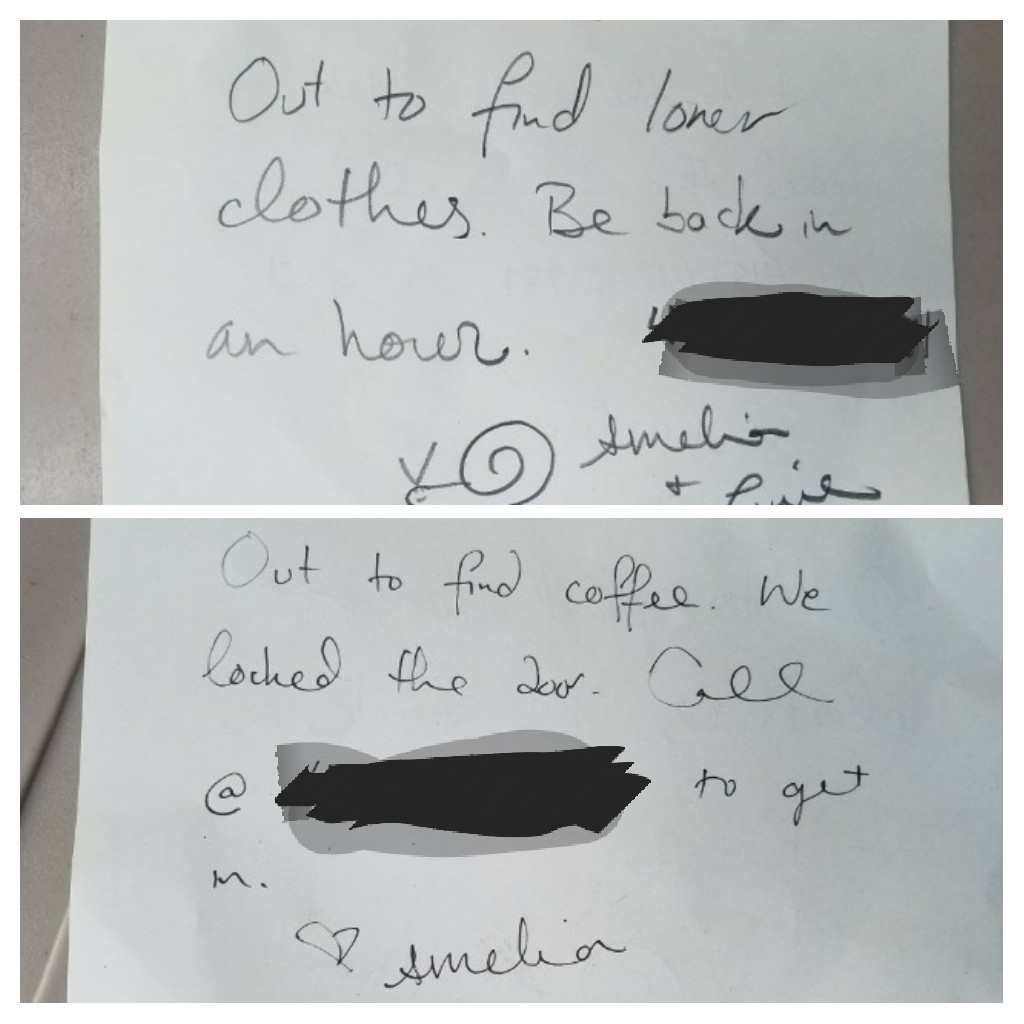 Out to find loner
clothes. Be back in
an hour.
Amelia
+
Out to find coffee. We
locked the door. Call
@ to get
in.
♡ Amelia